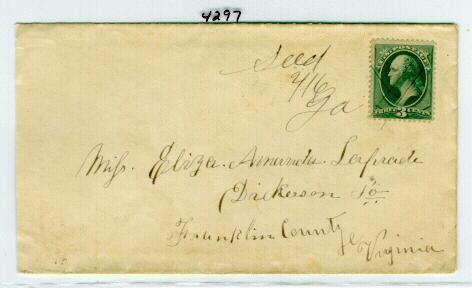 4297
Seed
4/16
Ga
U.S. POSTAGE
THREE 3 CENTS
Miss. Eliza. Amanda. Laprade
Dickerson Po
Franklin County
Virginia